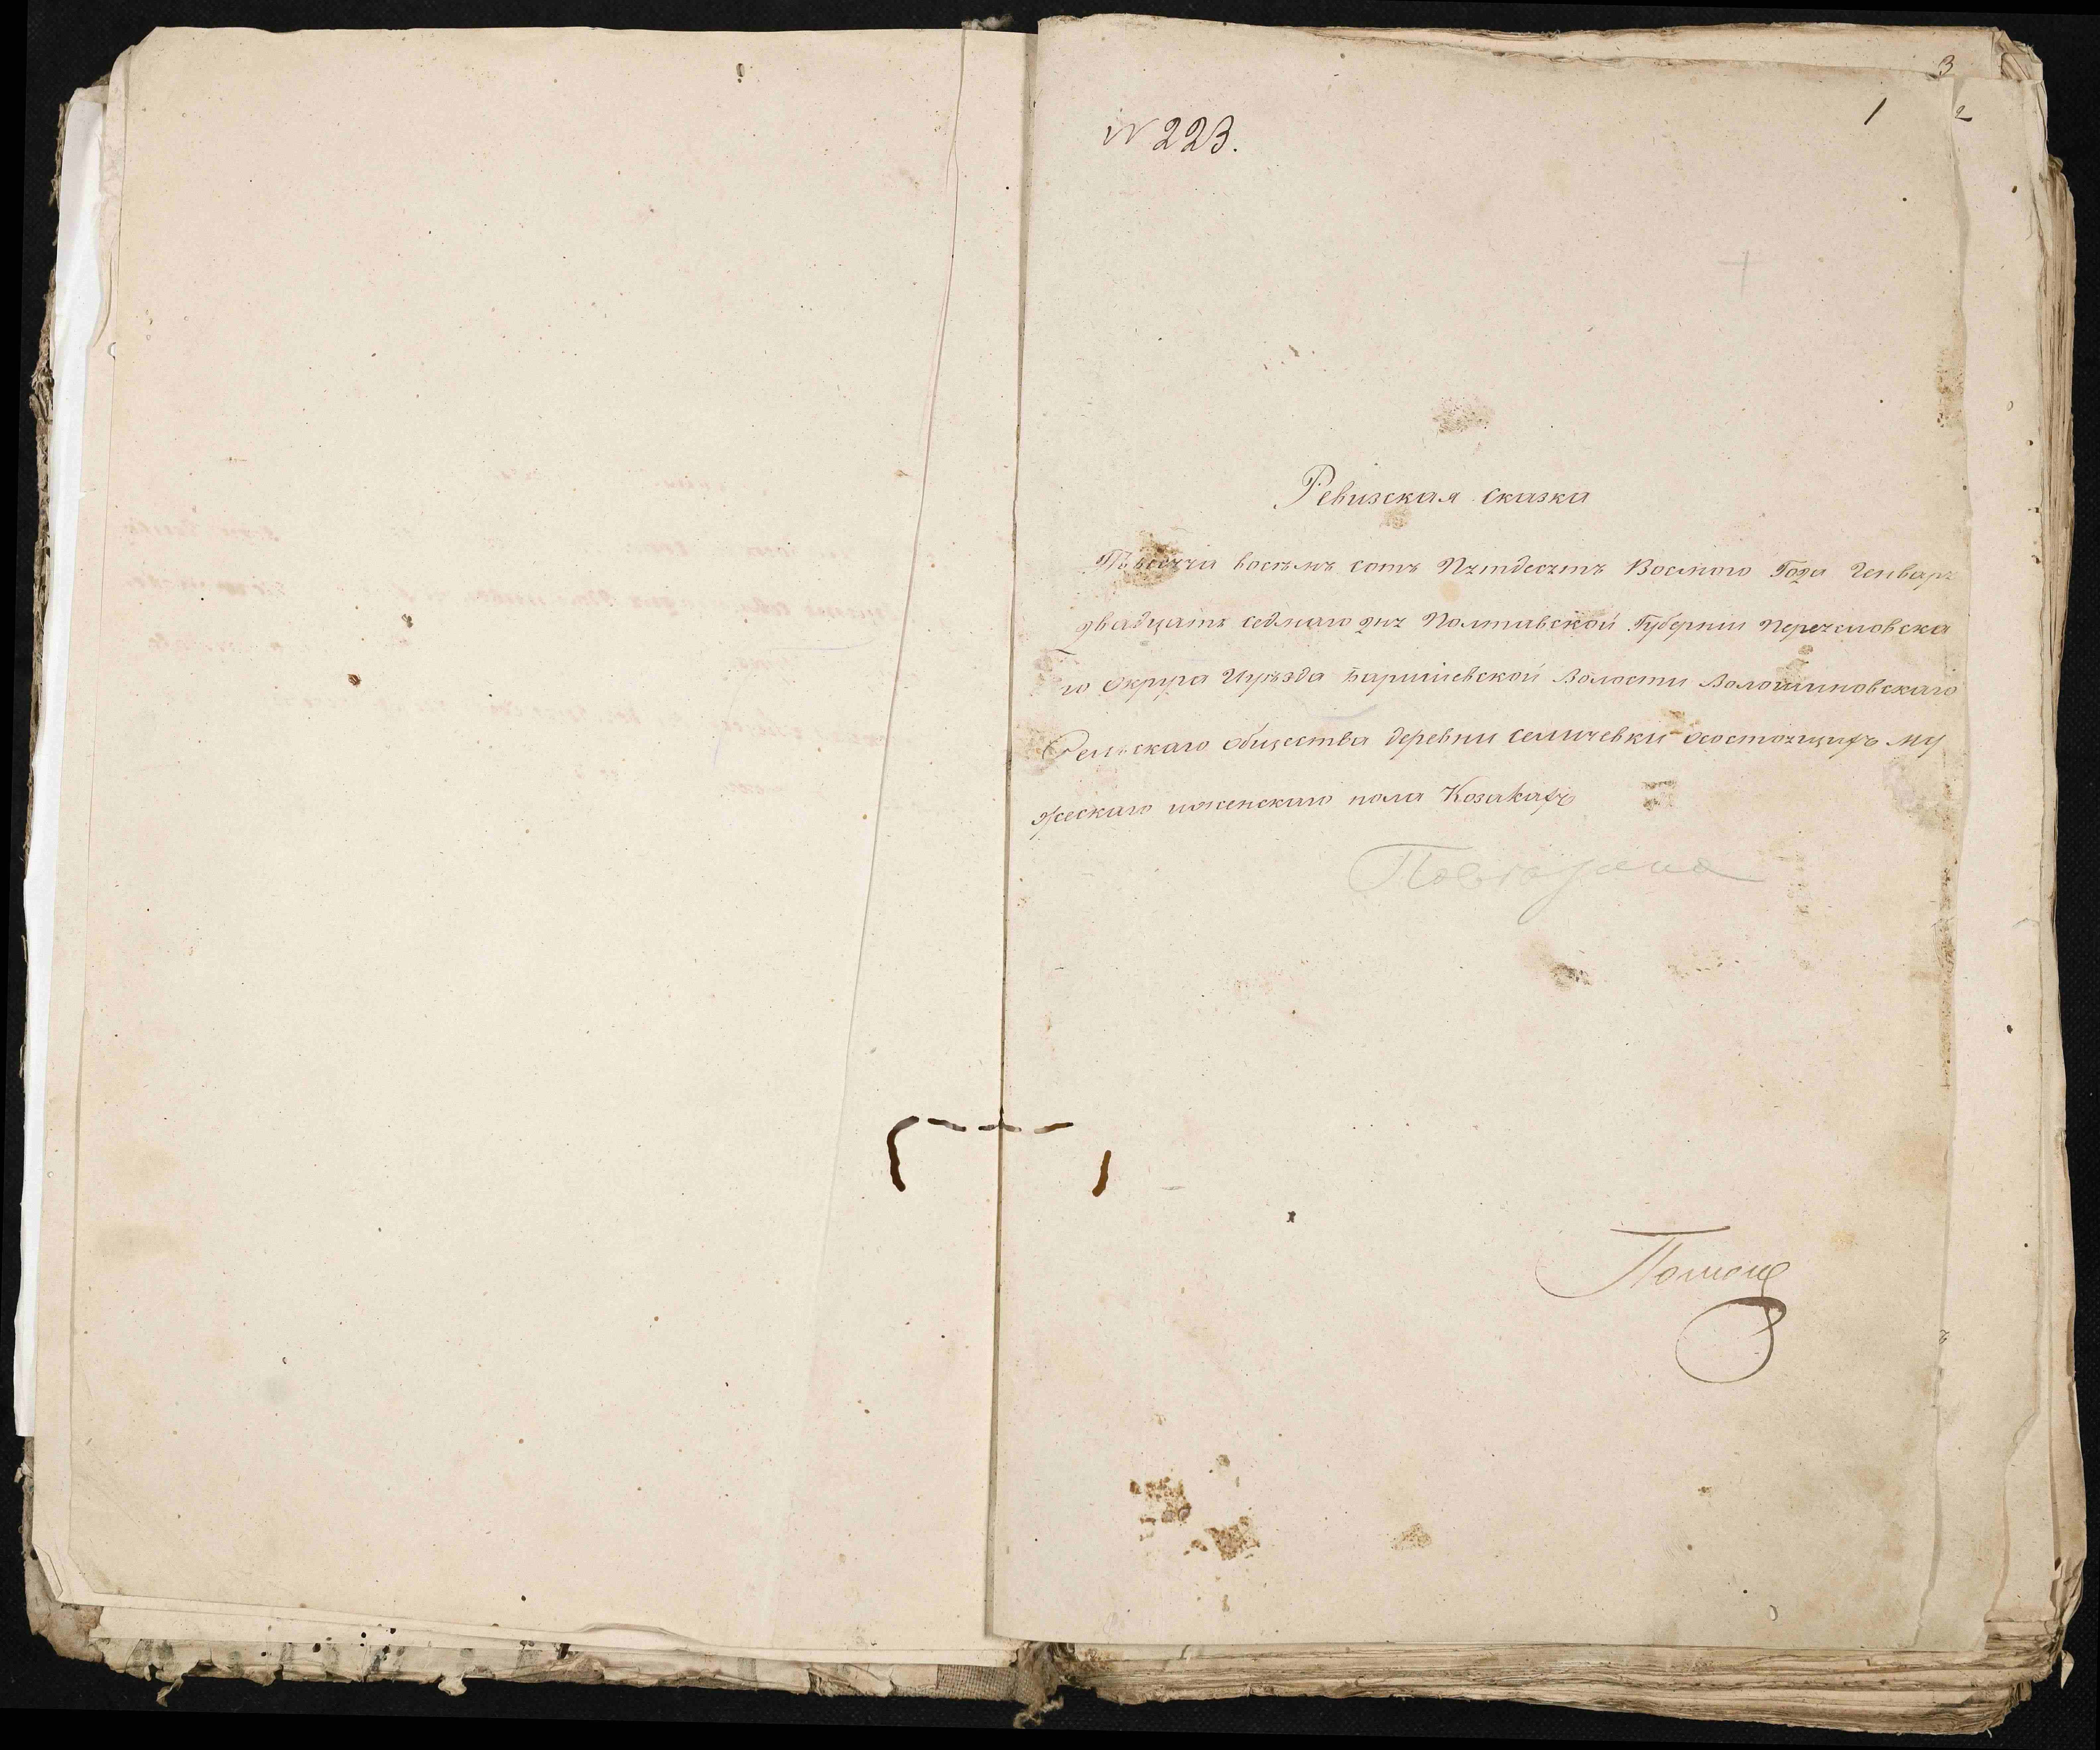 3
1
2
N 223.
Ревизская сказка
Тысяччи восѣмъ сотъ Пятдесятъ Восмого Года Генваря
двадцать седмаго дня Полтавской Губернии Переяслoвска
го Округа Иуѣзда Баришевской Волости Волошиновскаго
Селскаго общества деревни селичевки осостоящихъ му
жескаго иженскаго пола Козакахъ